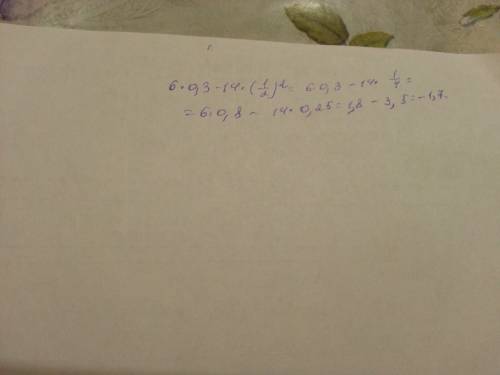 6·0,3-14·(1/2)²= 6·0,3-14·1/4=
=6·0,8-14·0,25=1,8-3,5=-1,7.